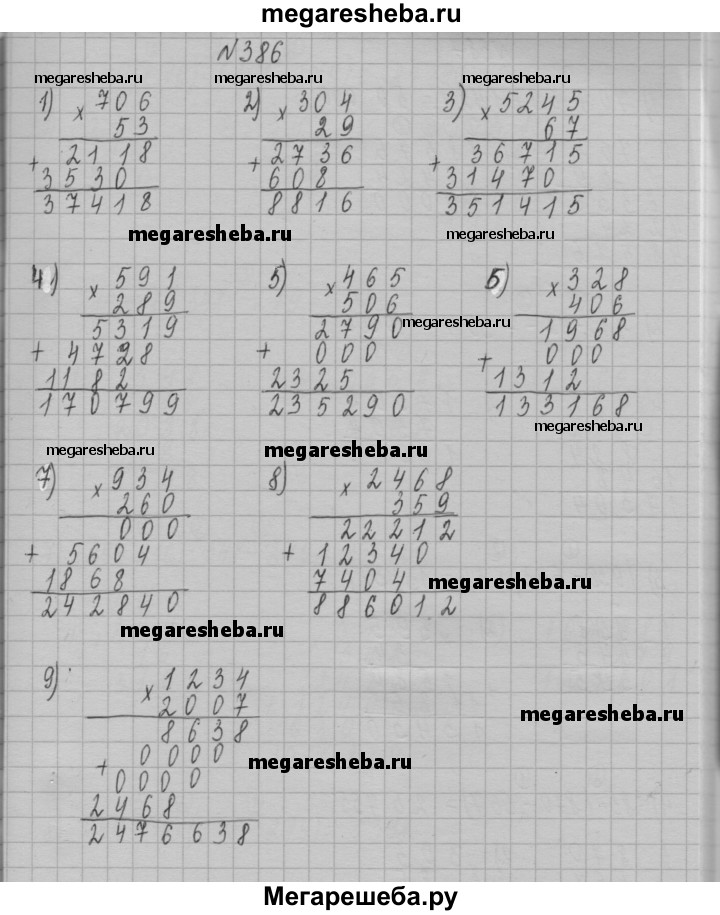 megaresheba.ru
N386
megaresheba.ru megaresheba.ru megaresheba.ru
1) × 706
53
+ 2118
3530
37418
2) × 304
29
+ 2736
608
8816
3) × 5245
67
+ 36715
31470
351415
megaresheba.ru megaresheba.ru
4) × 591
289
5319
+ 4728
1182
170799
5) × 465
506
2790 megaresheba.ru
+ 000
2325
235290
6) × 328
406
1968
+ 000
1312
133168
megaresheba.ru
megaresheba.ru megaresheba.ru
7) × 934
260
000
+ 5604
1868
242840
8) × 2468
359
22212
+ 12340
7404 megaresheba.ru
886012
megaresheba.ru
9) × 1234
2007
8638
megaresheba.ru
+ 0000 megaresheba.ru
0000
2468
2476638
Мегарешеба.ру